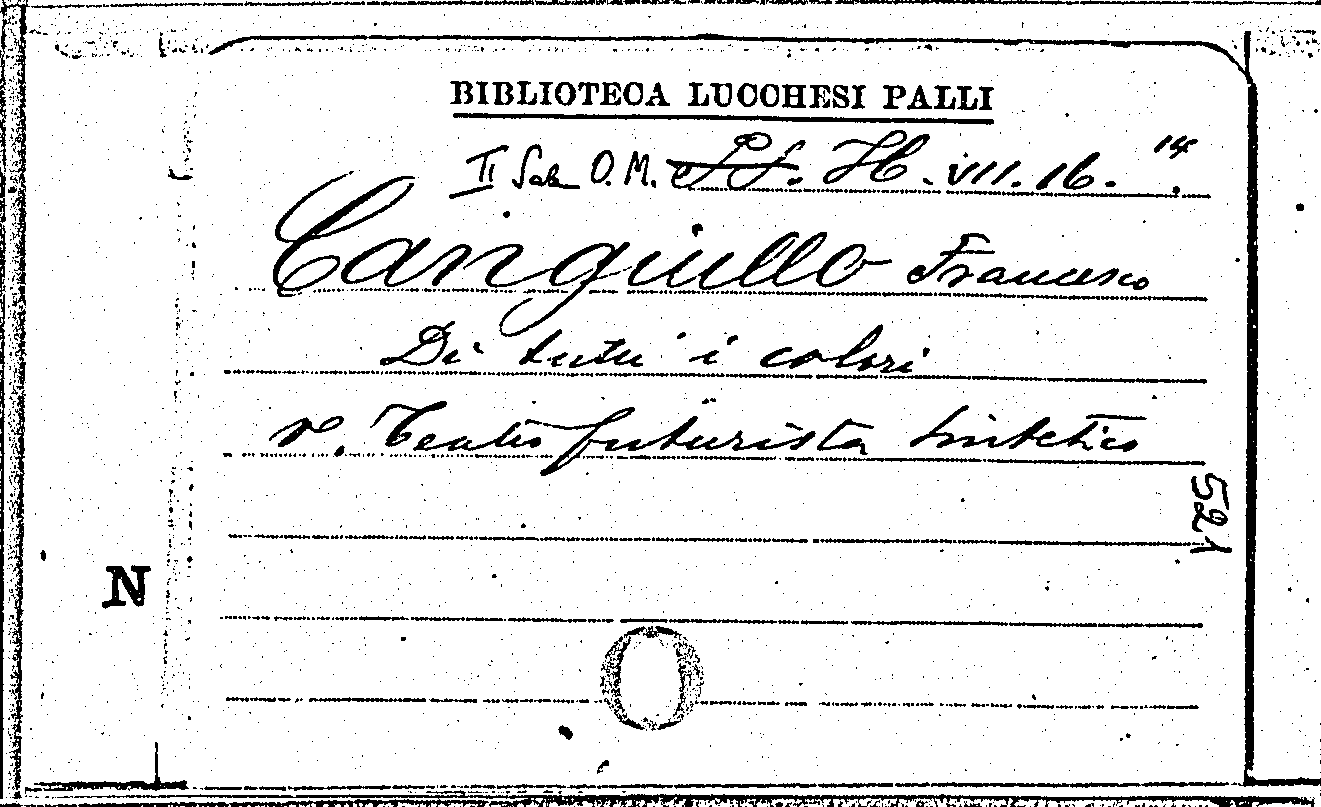 BIBLIOTECA LUCCHESI PALLI
II Sala O.M. H. VII. 16. 14
Cangiullo Francesco
Di tutti i colori
v. Teatro futurista sintetico
521
N